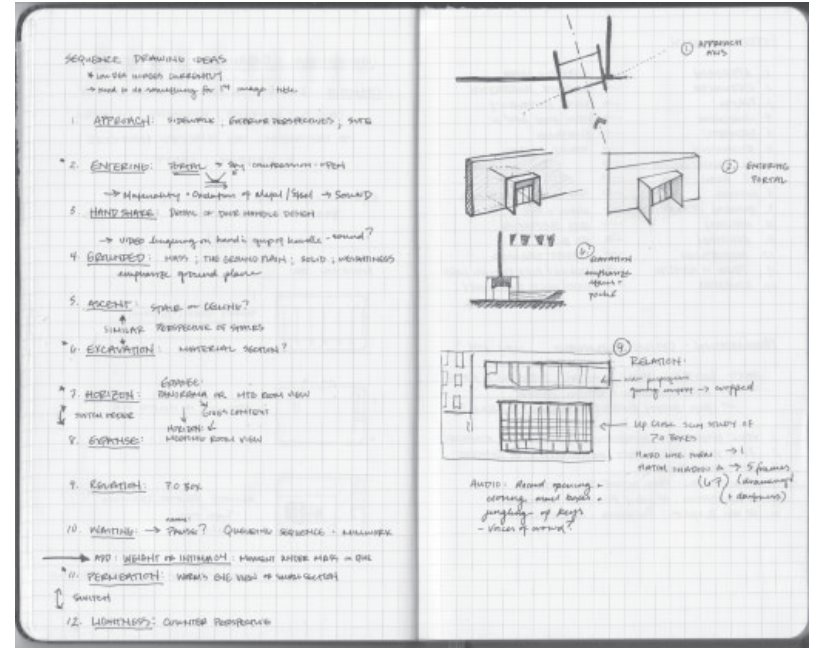 SEQUENCE DRAWING IDEAS
* UNDER IMAGES CURRENTLY
→ need to do something for 1st image title
1. APPROACH: SIDEWALK, EXTERIOR PERSPECTIVES, SITE
*2. ENTERING: PORTAL → COMPRESSION - OPEN
→ Materiality + of Metal/Steel → SOUND
3. HAND SHAKE: DETAIL OF DOOR HANDLE DESIGN
→ VIDEO lingering on hand's grip of handle - sound?
4. GROUNDED: MASS; THE GROUND PLAIN; SOLID; WEIGHTINESS
emphasize ground plane
5. ASCENT: STAIR CEILING?
SIMILAR PERSPECTIVE OF STAIRS
*6. EXCAVATION: MATERIAL SECTION?
EXPANSE:
*7. HORIZON: PANORAMA OR MTG ROOM VIEW
SWITCH ORDER
GIVES CONTEXT
HORIZON
8. EXPANSE: MEETING ROOM VIEW
9. RELATION: PO BOX
10. WAITING: → PAUSE? QUEUEING SEQUENCE + MILLWORK
→ ADD: WEIGHT OR INTIMACY: MOMENT UNDER MASS
*11. PERMEATION: WORM'S EYE VIEW OF SECTION
SWITCH
12. LIGHTNESS: COUNTER PERSPECTIVE
1 APPROACH
AXIS
2 ENTERING
PORTAL
6 EXCAVATION
emphasize
stairs +
portal
9
RELATION:
→ cropped
UP CLOSE STUDY OF
PO BOXES
HARD LINE → 1
SHADOW → 5 frames
(6?)
(+ darkness)
AUDIO: Record opening +
closing mail boxes +
jingling of keys
- voices of ?